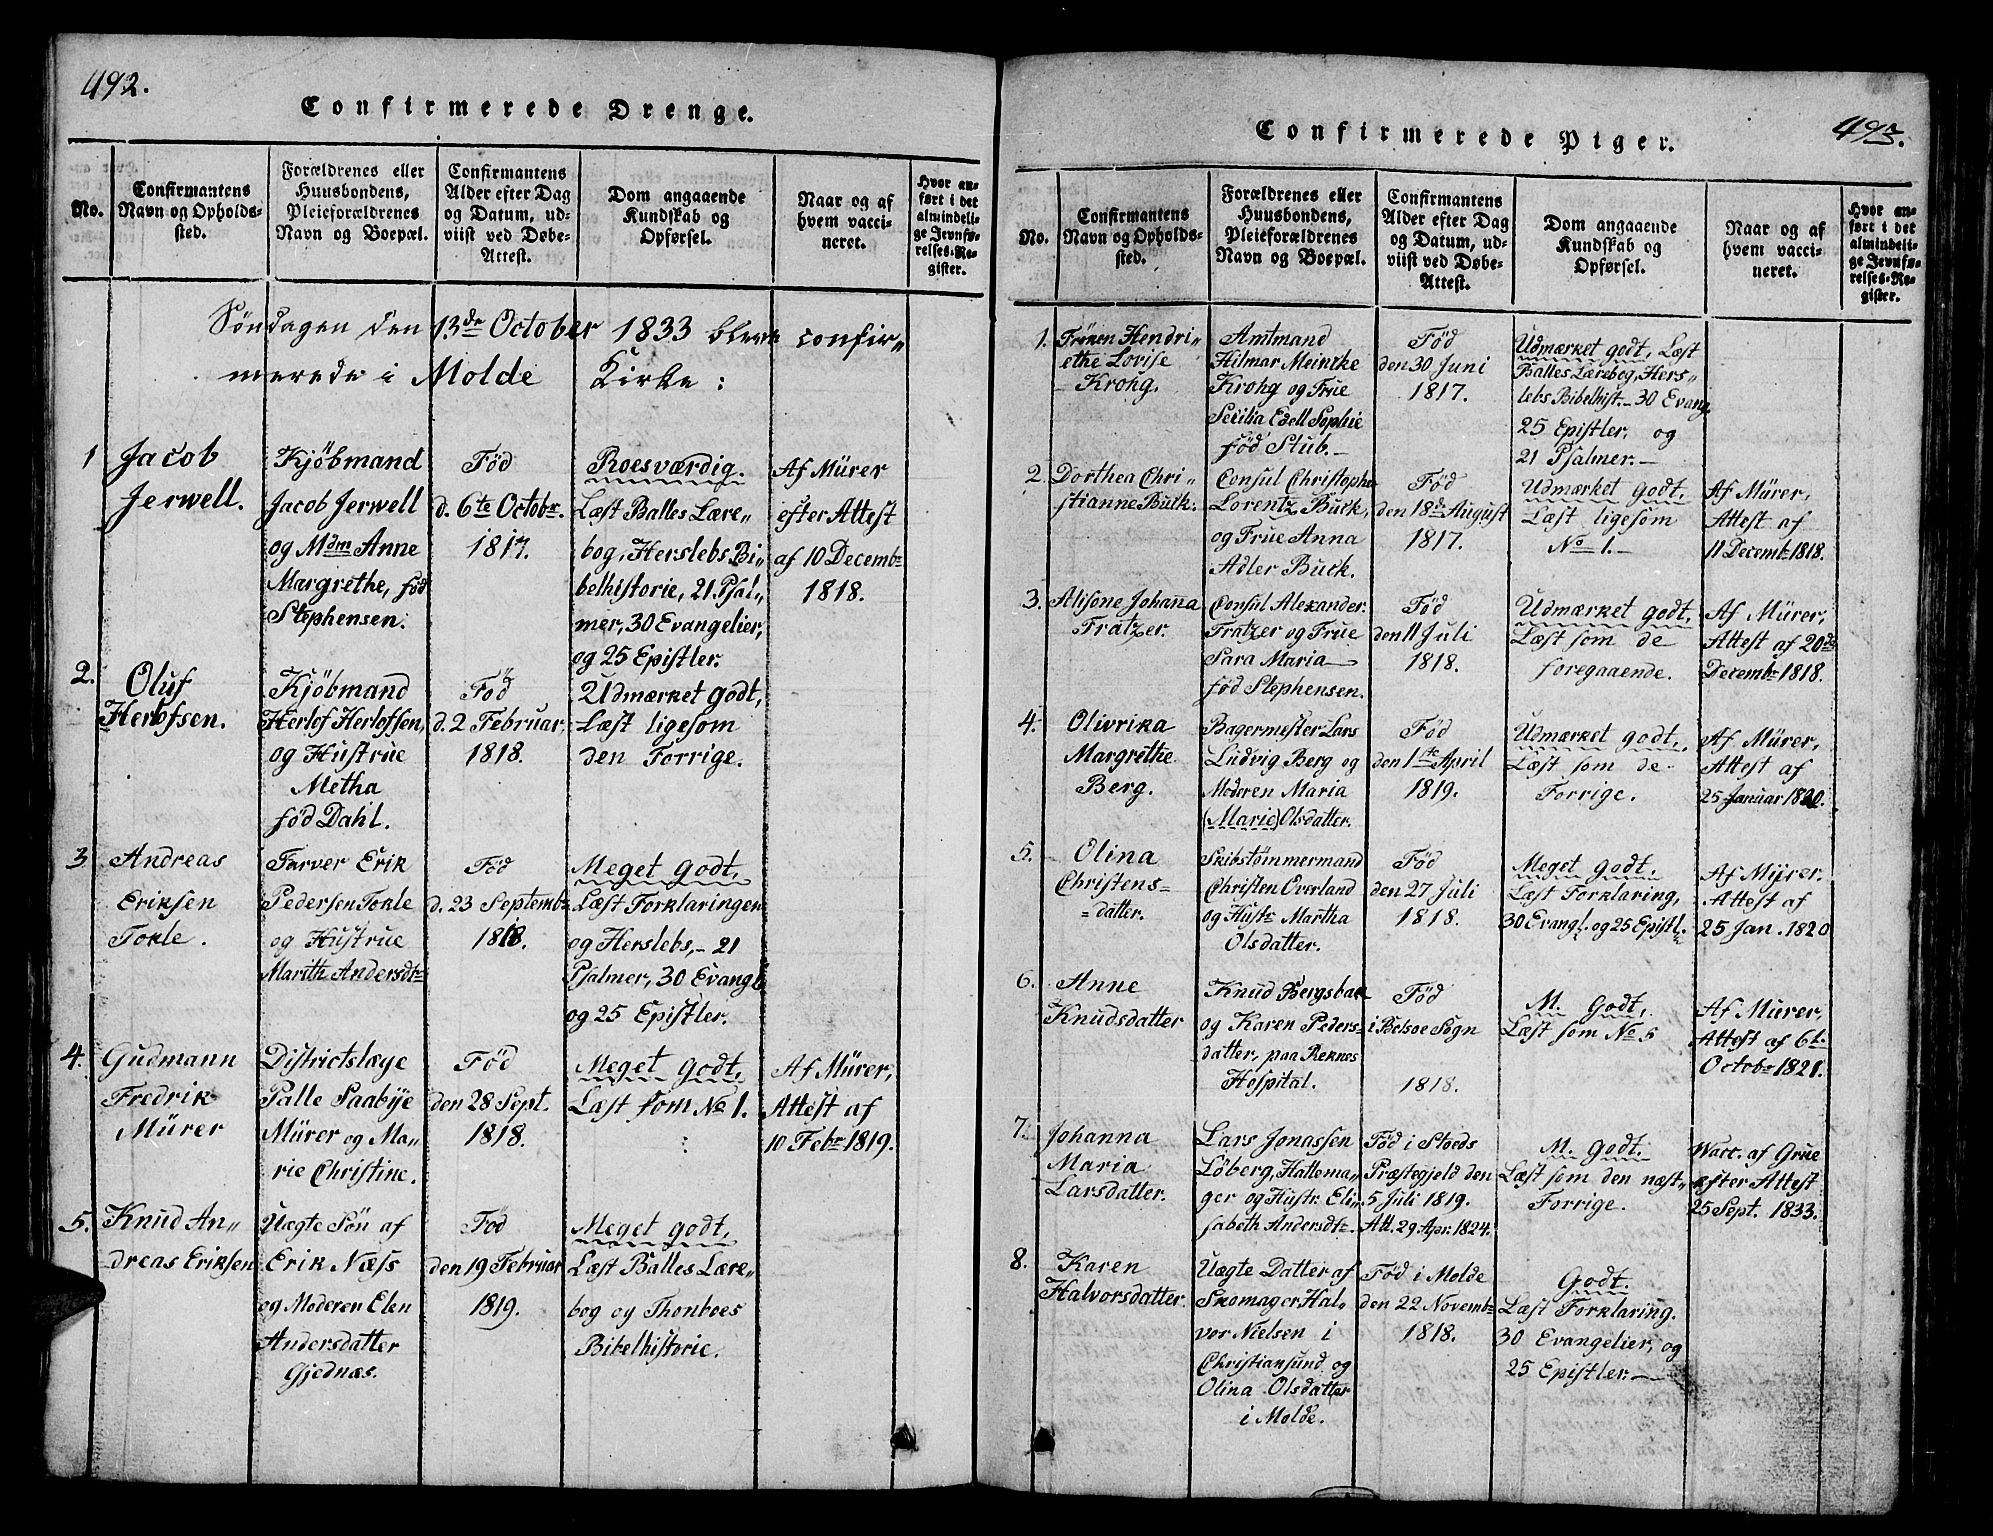 492.
Confirmerede Drenge.
No.
Confirmantens
Navn og Opholds-
sted.
Forældrenes eller
Huusbondens,
Pleieforældrenes
Navn og Boepæl.
Confirmantens
Alder efter Dag
og Datum, ud-
viist ved Døbe-
Attest.
Dom angaaende
Kundskab og
Opførsel.
Naar og af
hvem vacci-
neret.
Hvor an-
ført i det
almindeli-
ge Jevnfø-
relses-Re-
gister.
Söndagen den 13de October 1833 bleve confir„
merede i Molde Kirke:
1
Jacob
Jerwell.
Kjöbmand
Jacob Jerwell
og Mdm Anne
Margrethe, föd
Stephensen.
Föd
d. 6te Octobr.
1817.
Roesværdig.
Læst Balles Lære„
bog, Herslebs Bi„
belhistorie, 21 Psal„
mer, 30 Evangelier,
og 25 Epistler.
Af Mürer
efter Attest
af 10 Decembr
1818.
2.
Oluf
Herlofsen.
Kjöbmand
Herlof Herlofsen,
og Hustrue
Metha
föd Dahl.
Föd
d. 2 Februar,
1818.
Udmærket godt,
Læst ligesom
den Forrige.
3
Andreas
Eriksen
Tokle.
Farver Erik
Pedersen Tokle
og Hustrue
Marith Andersdtr
Föd
d. 23 Septembr
1818.
Meget godt,
Læst Forklaringen
og Herslebs, - 21
Psalmer, 30 Evangl
og 25 Epistler.
4.
Gudmann
Fredrik
Mürer
Districtslæge
Palle Saabye
Mürer og Ma„
rie Christine.
Föd
den 28 Sept.
1818.
Meget godt,
Læst som No 1.
Af Mürer,
Attest af
10 Febr 1819.
5.
Knud An„
dreas Eriksen
Uægte Sön af
Erik Næss
og Moderen Elen
Andersdatter
Gjednæs.
Föd
den 19 Februar
1819.
Meget godt,
Læst Balles Lære„
bog og Thonboes
Bibelhistorie.
493.
Confirmerede Piger.
No.
Confirmantens
Navn og Opholds-
sted.
Forældrenes eller
Huusbondens,
Pleieforældrenes
Navn og Boepæl.
Confirmantens
Alder efter Dag
og Datum, ud-
viist ved Døbe-
Attest.
Dom angaaende
Kundskab og
Opførsel.
Naar og af
hvem vacci-
neret.
Hvor an-
ført i det
almindeli-
ge Jevnfø-
relses-Re-
gister.
1.
Fröken Hendri„
ethe Lovise
Krohg.
Amtmand
Hilmar Meintke
Krohg og Frue
Secilia Edell Sophie
föd Stub.
Föd
den 30 Juni
1817.
Udmærket godt, Læst
Balles Lærebog, Hers„
lebs Bibelhist. - 30 Evang.
25 Epistler, og
21 Psalmer.
2.
Dorthea Chri„
stianne Buck.
Consul Christopher
Lorentz Buck,
og Frue Anna
Adler Buck.
Föd
den 18de August
1817.
Udmærket godt,
Læst ligesom
No 1.
Af Mürer,
Attest af
11 Decembr 1818.
3.
Alisone Johanna
Fratzer.
Consul Alexander
Fratzer og Frue
Sara Maria
föd Stephensen.
Föd
den 11 Juli
1818.
Udmærket godt,
Læst som de
foregaaende.
Af Mürer,
Attest af 20de
Decembr 1818.
4.
Olivrika
Margrethe
Berg.
Bagermester Lars
Ludvig Berg og
Moderen Maria
(Marie) Olsdatter.
Föd
den 1ste April
1819.
Udmærket godt,
Læst som de
Forrige.
Af Mürer,
Attest af
25 Januar 1820.
5.
Olina
Christens=
=datter.
Skibstömmermand
Christen Overland
og Hustr Martha
Olsdatter.
Föd
den 27 Juli
1818.
Meget godt,
Læst Forklaring,
30 Evangl. og 25 Epistl.
Af Mürer,
Attest af
25 Jan. 1820
6.
Anne
Knudsdatter
Knud Bergsbak
og Karen Peders-
datter, paa Reknes
Hospital.
Föd
i Bolsoe Sogn
1818.
M. godt,
Læst som No 5
Af Murer,
Attest af 6te
Octobr 1821.
7.
Johanna
Maria
Larsdatter.
Lars Jonassen
Löberg, Hattema„
ger og Hustr. Eli„
sabeth Andersdtr
Föd i Stoeds
Præstegjeld den
5 Juli 1819.
Att. 29. Apr. 1824.
M. godt.
Læst som den næst„
Forrige.
Vacc. af Grue
efter Attest
25 Sept. 1833.
8.
Karen
Halvorsdatter.
Uægte Datter af
Skomager Hal„
vor Nielsen i
Christiansund og
Olina Olsdatter
i Molde.
Föd i Molde
den 22 Novembr
1818.
Godt.
Læst Forklaring.
30 Evangelier, og
25 Epistler.